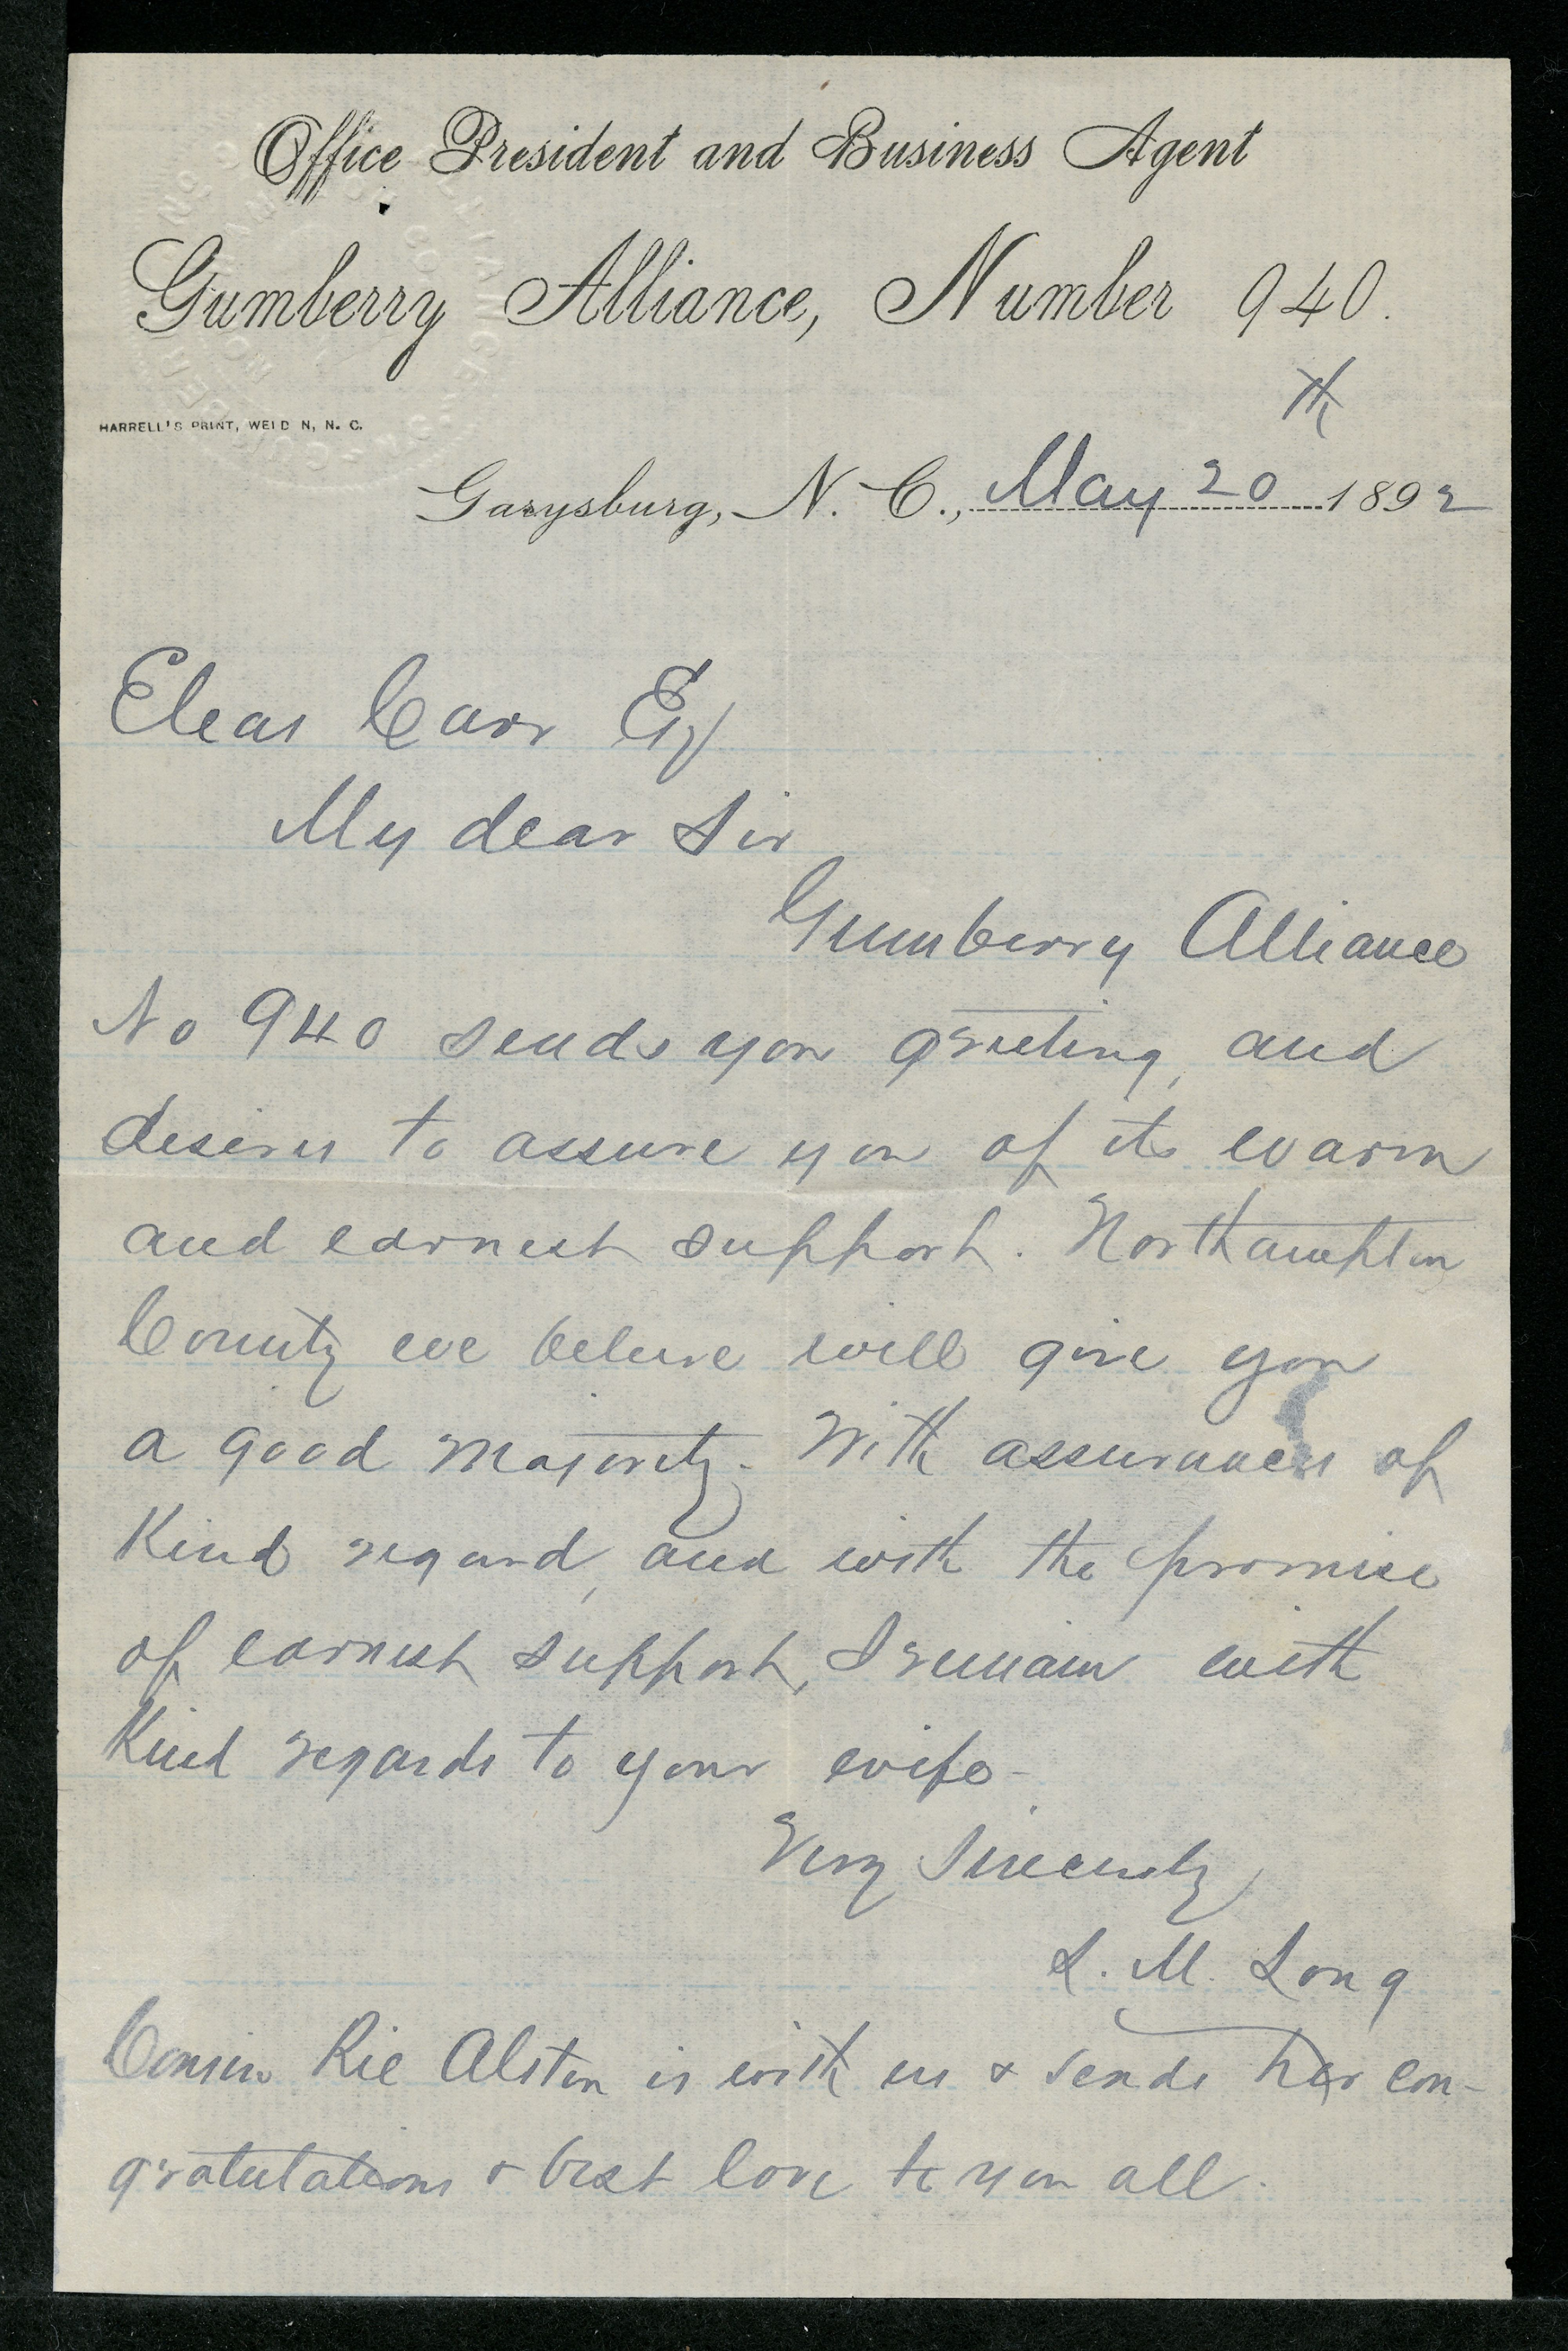 Office President and Business Agent
Gumberry Alliance, Number 940.
HARRELL'S PRINT, WELDON, N. C.
th
Garysburg, N. C., May 20 1892
Elias Carr Esq
My dear Sir
Gumberry Alliance
No 940 sends you greeting, and
desires to assure you of its warm
and earnest support. Northampton
County we believe will give you
a good majority. With assurances of
Kind regard, and with the promise
of earnest support, I remain with
Kind regards to your wife -
Very Sincerely
L. M. Long
Cousin Rie Alston is with us & sends her con-
gratulations & best love to you all.